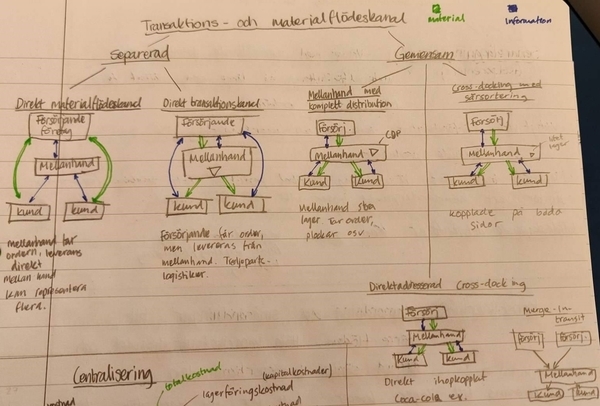 Transaktions- och materialflödeskanal
material
Information
Separerad
Gemensam
Direkt materialflödeskanal
Försörjande
företag
Mellanhand
kund
kund
mellanhand tar
ordern, leverans
direkt
mellan kund
kan representera
flera.
Direkt transaktionskanal
Försörjande
Mellanhand
kund
kund
Försörjande får order,
men levereras från
mellanhand. Tredjepart-
logistiker.
Mellanhand med
komplett distribution
Försörj.
CDP
Mellanhand
kund
kund
Mellanhand stor
lager. Tar order,
plockar osv
Cross-docking med
särsortering
Försörj
Mellanhand
kund
kund
kopplade på båda
sidor
Direktadresserad Cross-docking
Försörj
Mellanhand
kund
kund
Direkt ihopkopplat
Coca-cola ex.
Merge-In-
transit
Försörj
Försörj
Mellanhand
kund
kund
Centralisering
totalkostnad
lagerföringskostnad
(kapitalkostnader)